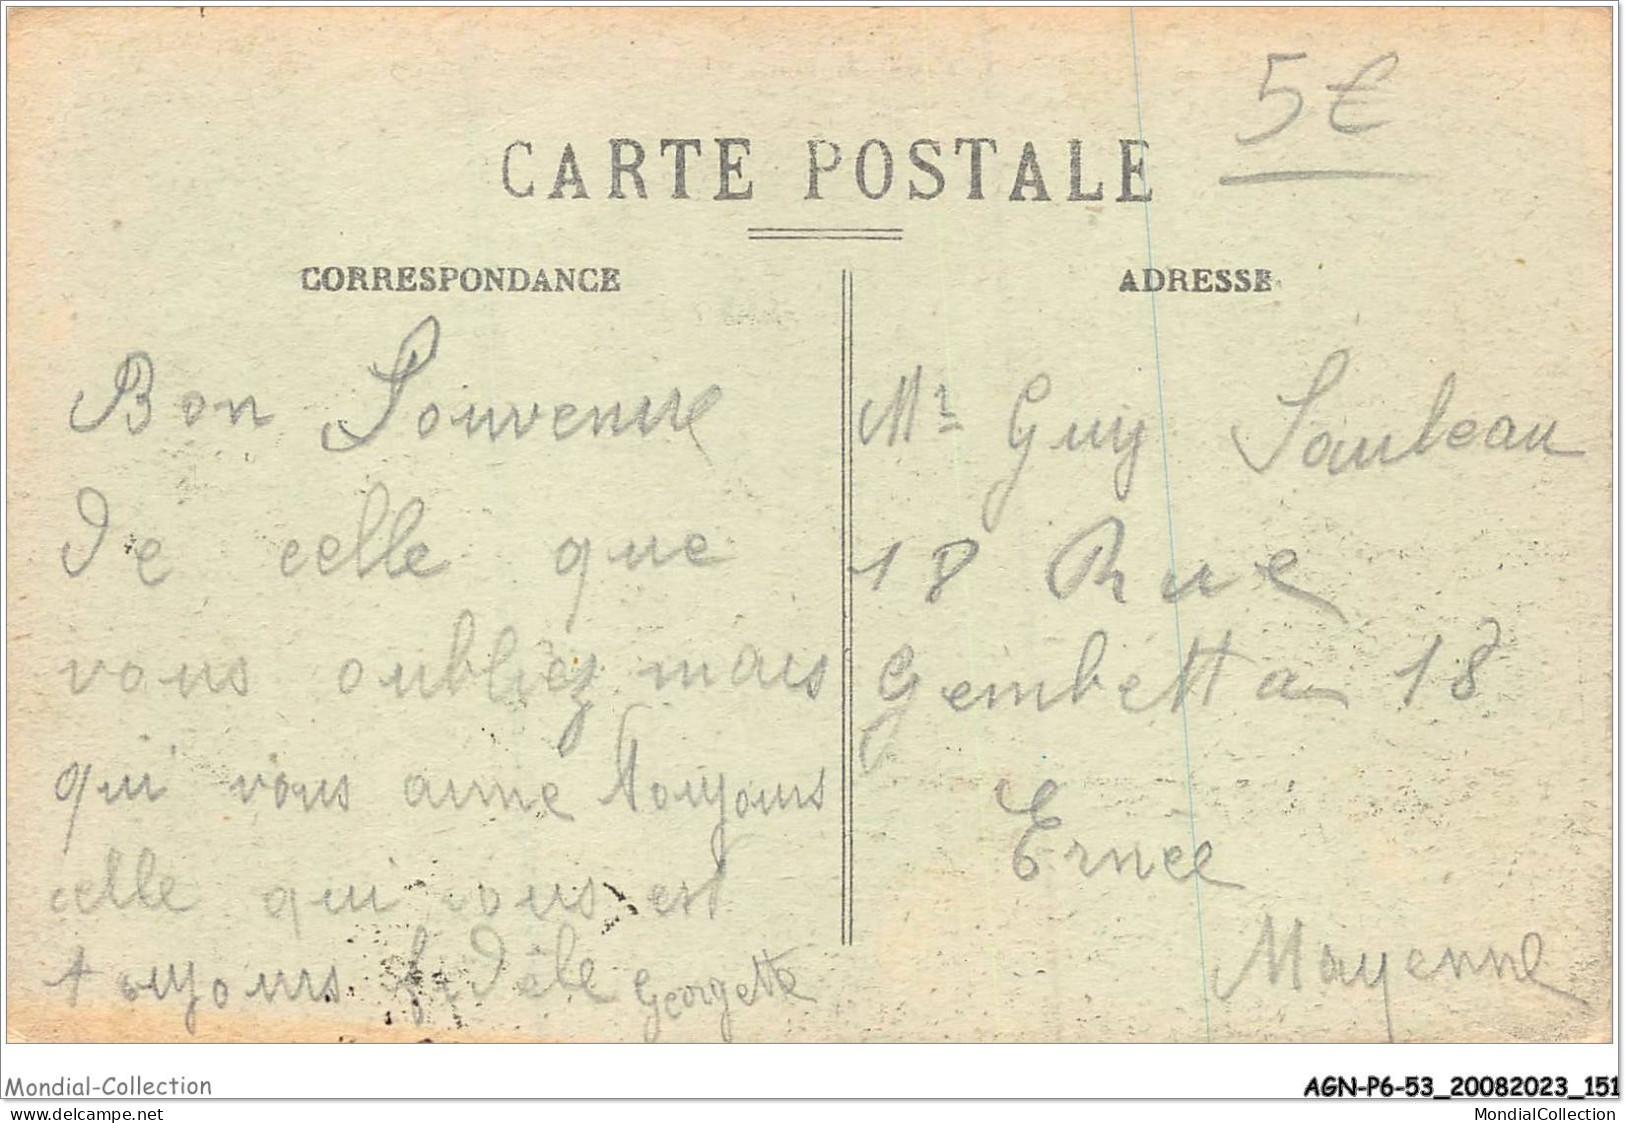 5€
CARTE POSTALE
CORRESPONDANCE
ADRESSE
Bon Souvenire
De celle que
vous oubliez mais
qui vous aime toujours
celle qui vous est
toujours fidèle Georgette
Mr Guy Sauleau
18 Rue
Gembetta 18
Ernée
Mayenne
Mondial-Collection
AGN-P6-53_20082023_151
delcampe.net
MondialCollection